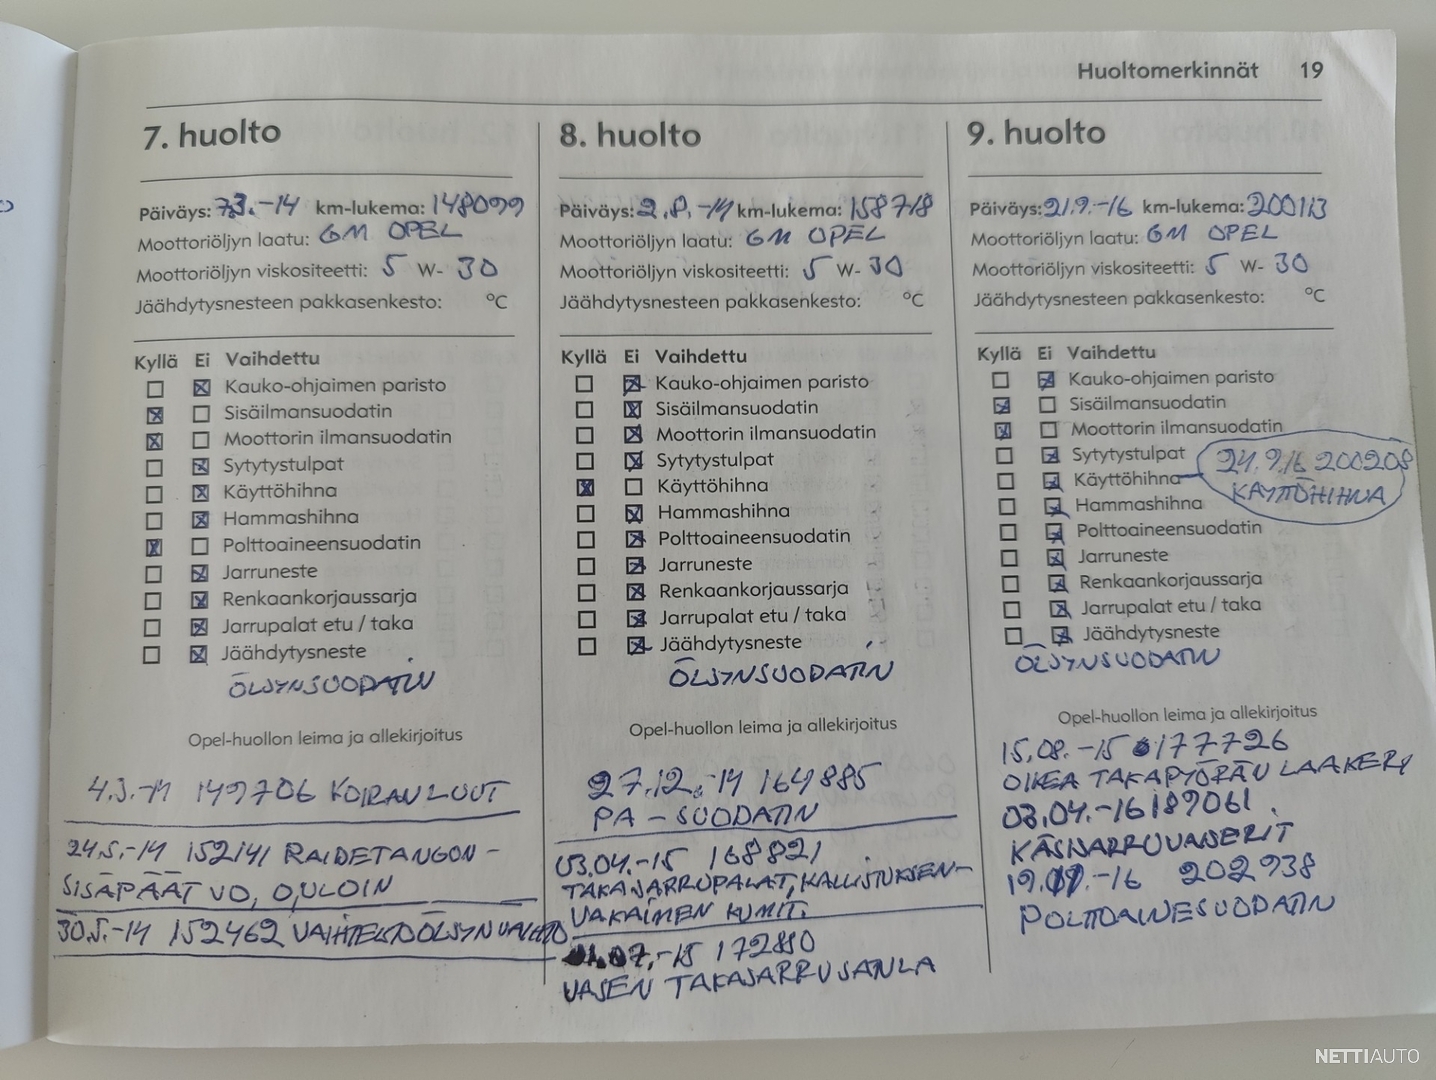 Huoltomerkinnät 19
7. huolto
Päiväys: 7.3.-14 km-lukema: 148099
Moottoriöljyn laatu: GM OPEL
Moottoriöljyn viskositeetti: 5 W- 30
Jäähdytysnesteen pakkasenkesto: °C
Kyllä Ei Vaihdettu
Kauko-ohjaimen paristo
Sisäilmansuodatin
Moottorin ilmansuodatin
Sytytystulpat
Käyttöhihna
Hammashihna
Polttoaineensuodatin
Jarruneste
Renkaankorjaussarja
Jarrupalat etu / taka
Jäähdytysneste
ÖLJYNSUODATIN
Opel-huollon leima ja allekirjoitus
149706 KOIRANLUUT
24.5.-14 152141 RAIDETANGON-
SISÄPÄÄT VO, O, ULOIN
30.5.-14 152462 VAIHTEISTOÖLJYN VAIHTO
8. huolto
Päiväys: 2.8.-14 km-lukema: 158718
Moottoriöljyn laatu: GM OPEL
Moottoriöljyn viskositeetti: 5 W- 30
Jäähdytysnesteen pakkasenkesto: °C
Kyllä Ei Vaihdettu
Kauko-ohjaimen paristo
Sisäilmansuodatin
Moottorin ilmansuodatin
Sytytystulpat
Käyttöhihna
Hammashihna
Polttoaineensuodatin
Jarruneste
Renkaankorjaussarja
Jarrupalat etu / taka
Jäähdytysneste
ÖLJYNSUODATIN
Opel-huollon leima ja allekirjoitus
27.12.-14 164885
PA-SUODATIN
03.04.-15 168821
TAKAJARRUPALAT, KALLISTUKSEN-
VAKAIMEN KUMIT.
07.-15 172880
VASEN TAKAJARRUSANLA
9. huolto
Päiväys: 21.9.-16 km-lukema: 200113
Moottoriöljyn laatu: GM OPEL
Moottoriöljyn viskositeetti: 5 W- 30
Jäähdytysnesteen pakkasenkesto: °C
Kyllä Ei Vaihdettu
Kauko-ohjaimen paristo
Sisäilmansuodatin
Moottorin ilmansuodatin
Sytytystulpat
Käyttöhihna
24.9.16 200208
KÄYTTÖHIHNA
Hammashihna
Polttoaineensuodatin
Jarruneste
Renkaankorjaussarja
Jarrupalat etu / taka
Jäähdytysneste
ÖLJYNSUODATIN
Opel-huollon leima ja allekirjoitus
15.08.-15 177726
OIKEA TAKAPYÖRÄN LAAKERI
03.04.-16 189061.
KÄSIJARRUVAIJERIT
-16 202938
POLTTOAINESUODATIN
NETTIAUTO